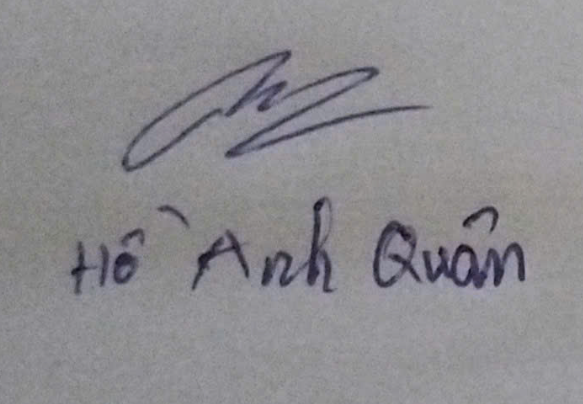 Hồ Anh Quân